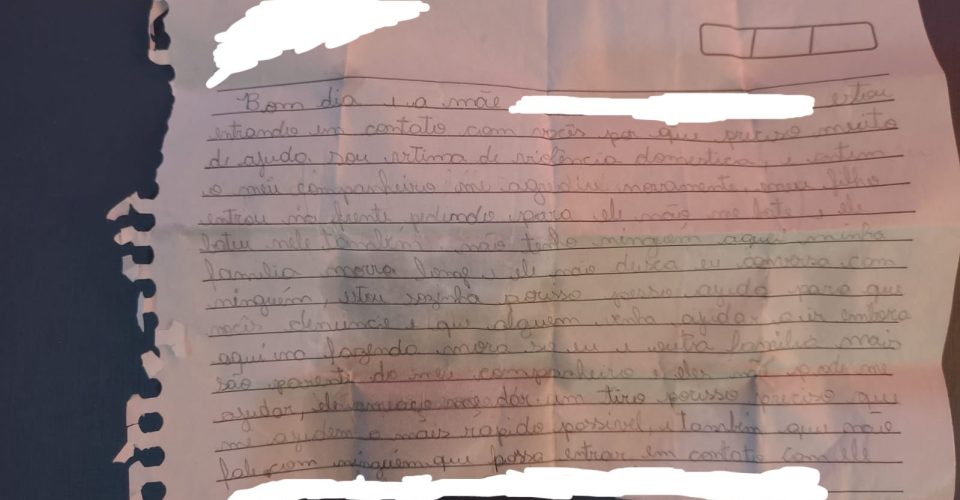 Bom dia e a mãe estou
entrando em contato com vocês por que preciso muito
de ajuda, sou vitima de violência domestica, e ontem
o meu companheiro me agrediu novamente, meu filho
entrou na frente pedindo para ele não me bate e ele
bateu nele também não tenho ninguém aqui minha
familia morra longe e ele não deixa eu conversa com
ninguém, estou sozinha posso ajuda para que
vocês denuncie e que alguem venha ajudar a ir embora
aqui na fazenda mora so eu e outra familia mais
são parente do meu companheiro e eles não pode me
ajudar, dar um tiro preciso que
me ajudem o mais rápido possivel, e também que não
fale com ninguém que possa entrar em contato com ele